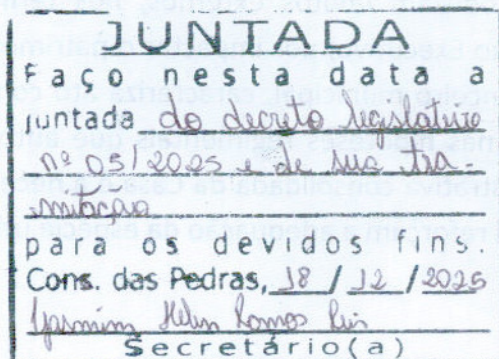 JUNTADA
Faço nesta data a
juntada do decreto legislativo
nº 05/2025 e de sua tra-
mitação
para os devidos fins.
Cons. das Pedras, 18 / 12 / 2025
Yasmim Helen Ramos
Secretário(a)